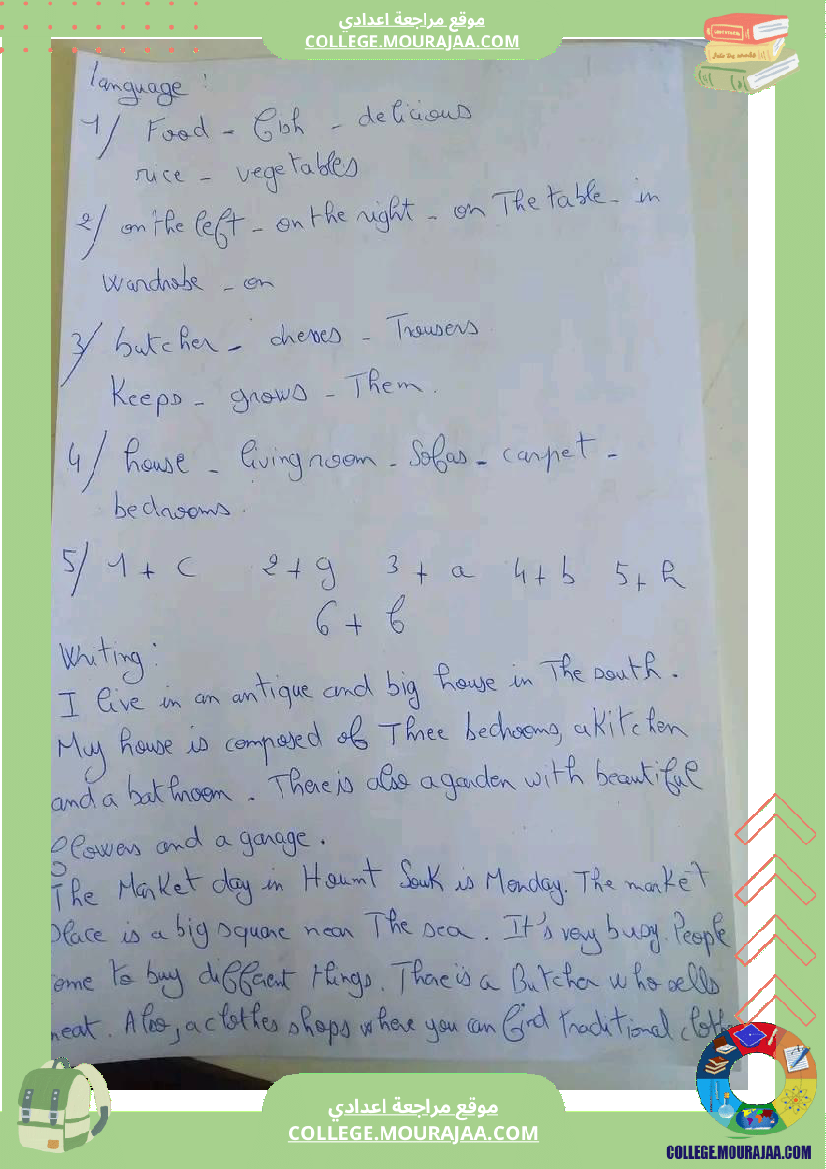 موقع مراجعة اعدادي
COLLEGE.MOURAJAA.COM
language :
1/ Food - fish - delicious
rice - vegetables
2/ on the left - on the right - on The table - in
wardrobe - on
3/ butcher - - Trousers
Keeps - grows - Them.
4/ house - living room - Sofas - carpet -
bedrooms.
5/ 1 + c 2 + g 3 + a 4 + b 5 + h
6 + f
Writing :
I live in an antique and big house in The south.
My house is composed of Three bedrooms, a Kitchen
and a bathroom. There is also a garden with beautiful
flowers and a garage.
The Market day in Houmt Souk is Monday. The market
place is a big square near The sea. It's very busy. People
ome to buy different things. There is a Butcher who sells
meat. Also, a clothes shops where you can find traditional cloth
موقع مراجعة اعدادي
COLLEGE.MOURAJAA.COM
COLLEGE.MOURAJAA.COM